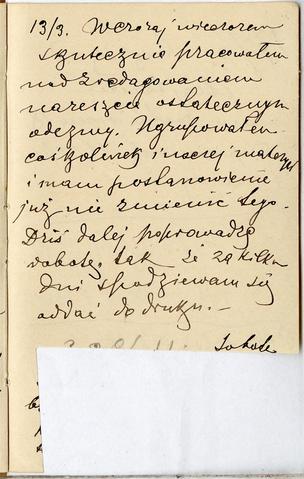 13/3. Wczoraj wieczorem
skutecznie pracowałem
nad zredagowaniem
nareszcie ostatecznym
odezwy. Ugrupowałem
cośkolwiek inaczej materyał
i mam postanowienie
już nie zmienić tego.
Dziś dalej poprowadzę
robotę, tak że za kilka
dni spodziewam się
oddać do druku. —